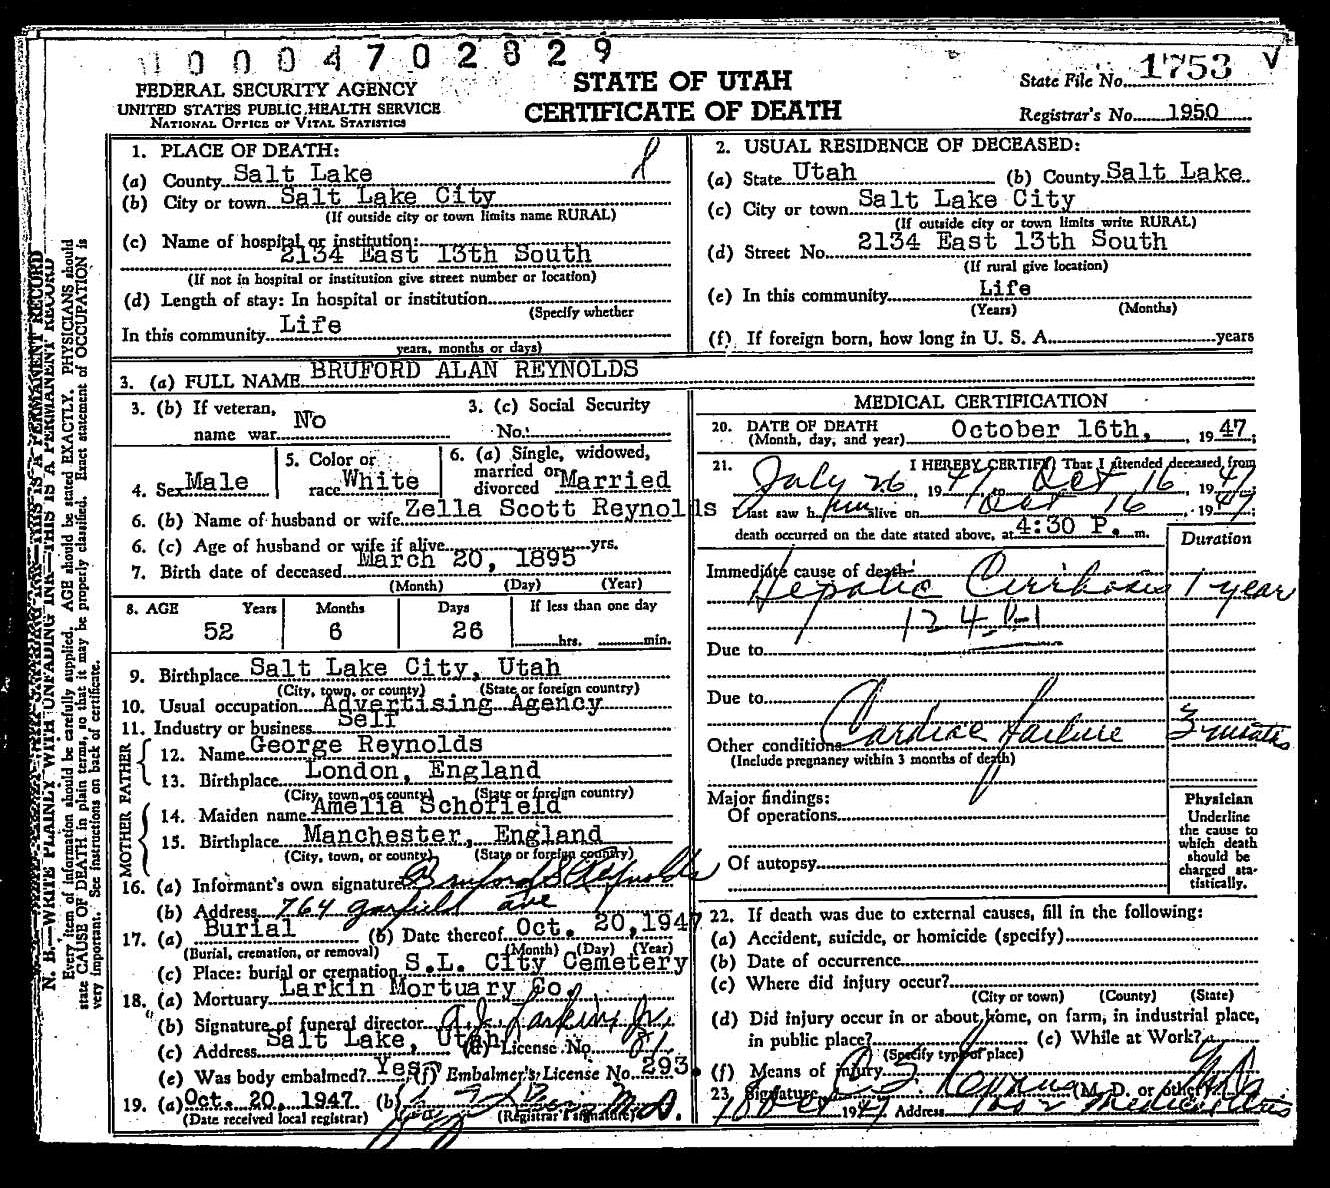 0004702829
FEDERAL SECURITY AGENCY
UNITED STATES PUBLIC HEALTH SERVICE
NATIONAL OFFICE OF VITAL STATISTICS
STATE OF UTAH
CERTIFICATE OF DEATH
State File No. 1753
Registrar's No. 1950
1. PLACE OF DEATH:
(a) County Salt Lake
(b) City or town Salt Lake City
(If outside city or town limits name RURAL)
(c) Name of hospital or institution:
2134 East 13th South
(If not in hospital or institution give street number or location)
(d) Length of stay: In hospital or institution
(Specify whether
In this community Life
years, months or days)
2. USUAL RESIDENCE OF DECEASED:
(a) State Utah (b) County Salt Lake
(c) City or town Salt Lake City
(If outside city or town limits write RURAL)
(d) Street No. 2134 East 13th South
(If rural give location)
(e) In this community Life
(Years) (Months)
(f) If foreign born, how long in U. S. A. years
3. (a) FULL NAME BRUFORD ALAN REYNOLDS
3. (b) If veteran, No
name war
3. (c) Social Security
No.
4. Sex Male
5. Color or
race White
6. (a) Single, widowed,
married or
divorced Married
6. (b) Name of husband or wife Zella Scott Reynolds
6. (c) Age of husband or wife if alive yrs.
7. Birth date of deceased March 20, 1895
(Month) (Day) (Year)
8. AGE Years Months Days If less than one day
52 6 26 hrs. min.
9. Birthplace Salt Lake City, Utah
(City, town, or county) (State or foreign country)
10. Usual occupation Advertising Agency
11. Industry or business Self
FATHER
12. Name George Reynolds
13. Birthplace London, England
(City, town, or county) (State or foreign country)
MOTHER
14. Maiden name Amelia Schofield
15. Birthplace Manchester, England
(City, town, or county) (State or foreign country)
16. (a) Informant's own signature Bruford S Reynolds
(b) Address 764 Garfield Ave
17. (a) Burial (b) Date thereof Oct. 20, 1947
(Burial, cremation, or removal) (Month) (Day) (Year)
(c) Place: burial or cremation S.L. City Cemetery
18. (a) Mortuary Larkin Mortuary Co.
(b) Signature of funeral director A.J. Larkin Jr.
(c) Address Salt Lake, Utah (d) License No. 81
(e) Was body embalmed? Yes (f) Embalmer's License No. 293.
19. (a) Oct. 20, 1947 (b) M.D.
(Date received local registrar) (Registrar's signature)
MEDICAL CERTIFICATION
20. DATE OF DEATH
(Month, day, and year) October 16th, 1947
21. I HEREBY CERTIFY That I attended deceased from
July 26, 1947, to Oct 16, 1947
I last saw him alive on Oct 16, 1947;
death occurred on the date stated above, at 4:30 P. m.
Duration
Immediate cause of death:
Hepatic Cirrhosis 1 year
124
Due to
Due to
Cardiac failure 3 months
Other conditions
(Include pregnancy within 3 months of death)
Major findings:
Of operations
Of autopsy
Physician
Underline
the cause to
which death
should be
charged sta-
tistically.
22. If death was due to external causes, fill in the following:
(a) Accident, suicide, or homicide (specify)
(b) Date of occurrence
(c) Where did injury occur?
(City or town) (County) (State)
(d) Did injury occur in or about home, on farm, in industrial place,
in public place? (e) While at Work?
(Specify type of place)
(f) Means of injury
23. Signature (M. D. or other)
18 Oct 1947 Address 1002 Medical Arts
N. B.—WRITE PLAINLY WITH UNFADING INK—THIS IS A PERMANENT RECORD
Every item of information should be carefully supplied. AGE should be stated EXACTLY. PHYSICIANS should
state CAUSE OF DEATH in plain terms, so that it may be properly classified. Exact statement of OCCUPATION is
very important. See instructions on back of certificate.